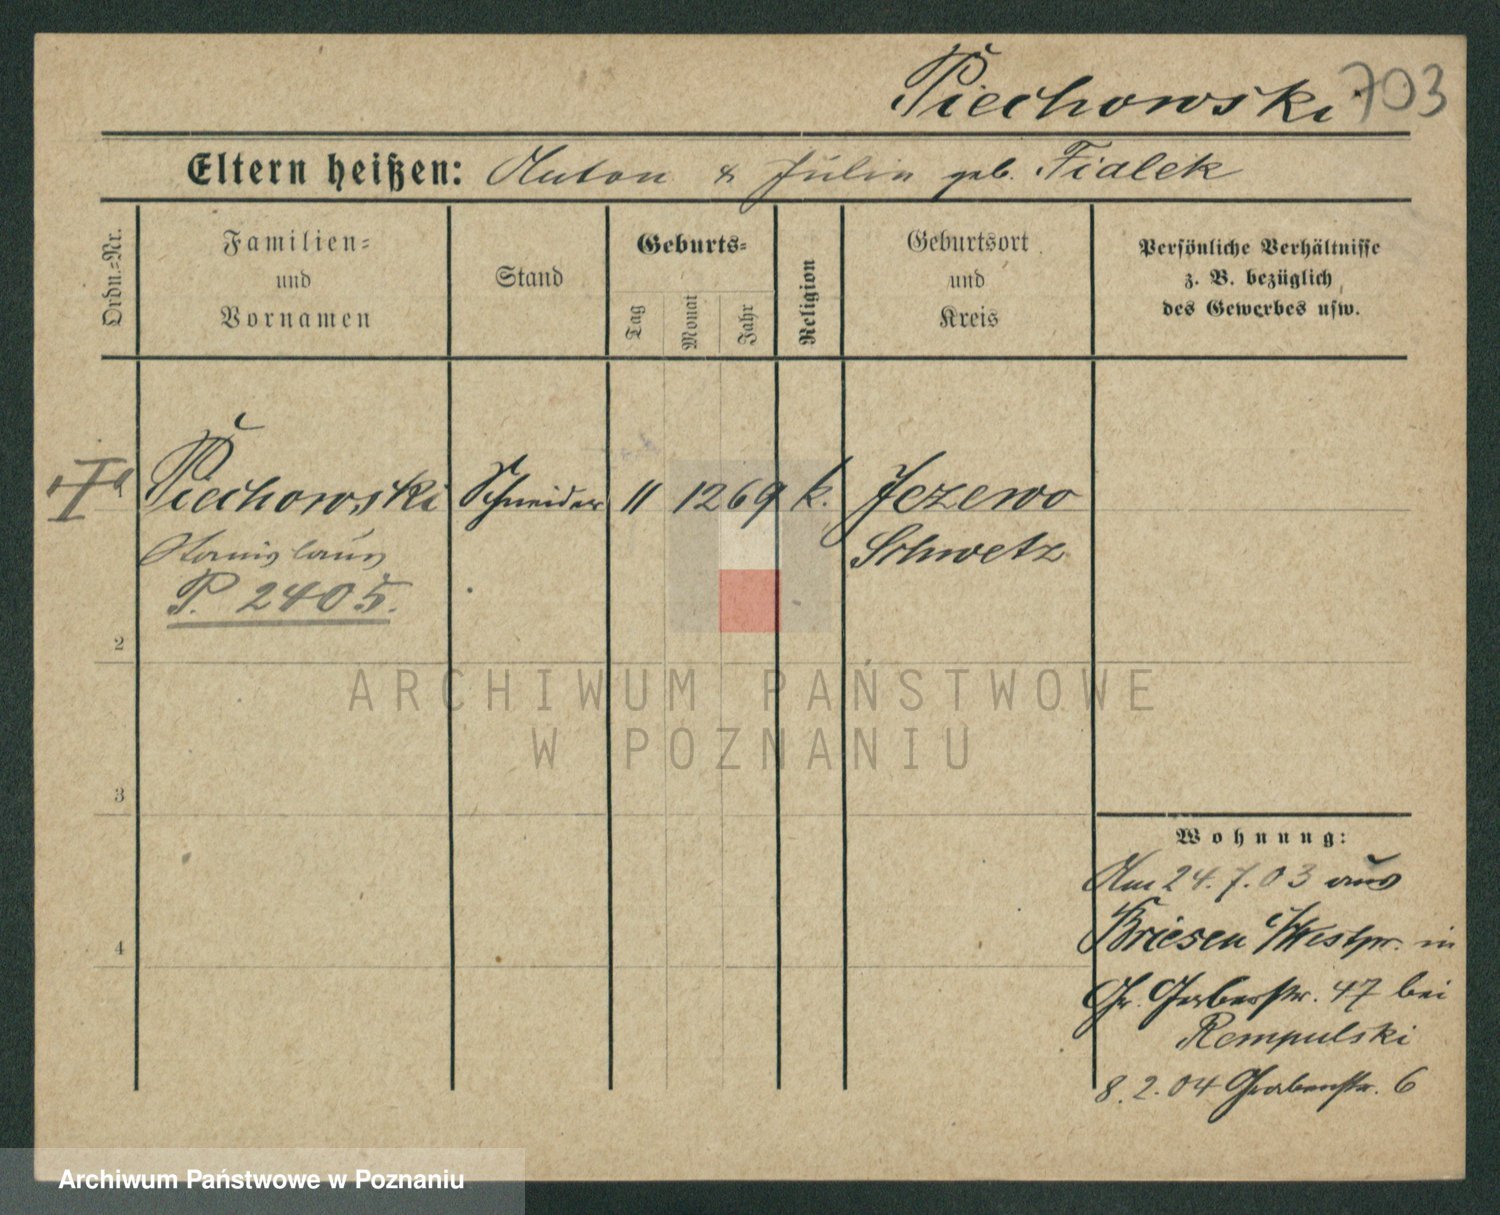 Piechowski 703
Eltern heißen: Anton & Julia geb. Fialek
Ordn.=Nr.
Familien=
und
Vornamen
Stand
Geburts=
Tag
Monat
Jahr
Religion
Geburtsort
und
Kreis
Persönliche Verhältnisse
z. B. bezüglich
des Gewerbes usw.
Piechowski Schneider 11 12 69 k. Jezewo
Stanislaus Schwetz
P. 2405.
2
3
4
Wohnung:
Am 24. 7. 03 aus
Briesen i/Westpr. in
Gr. Gerberstr. 47 bei
Rempulski
8. 2. 04 Grabenstr. 6
ARCHIWUM PAŃSTWOWE
W POZNANIU
Archiwum Państwowe w Poznaniu